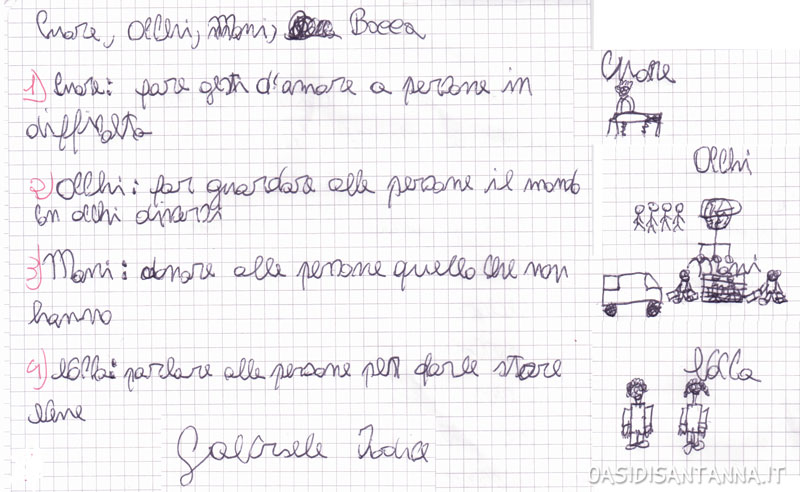 Cuore, Occhi, Mani, Bocca
1) Cuore: fare gesti d'amore a persone in
difficolta
2) Occhi: far guardare alle persone il mondo
con occhi diversi
3) Mani: donare alle persone quello che non
hanno
4) Bocca: parlare alle persone per farle stare
bene
Gabriele Iodice
Cuore
Occhi
Mani
Bocca
OASIDISANTANNA.IT